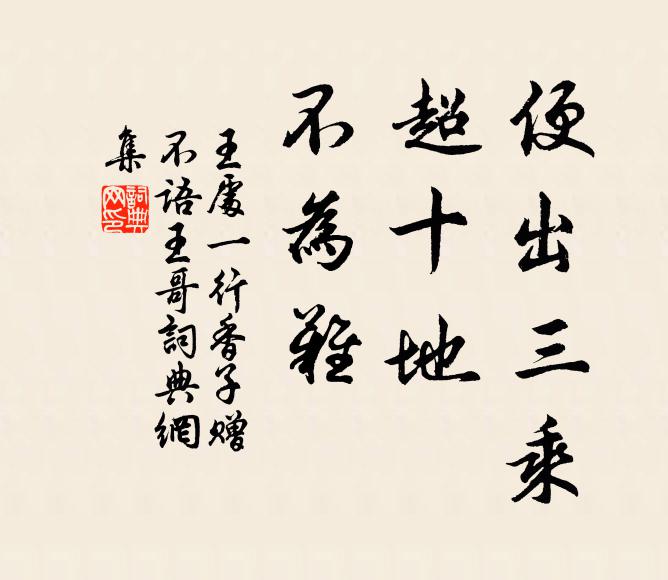 便出三乘
超十地
不為難
王處一行香子贈
不語王哥詞典網
集
詞典網印